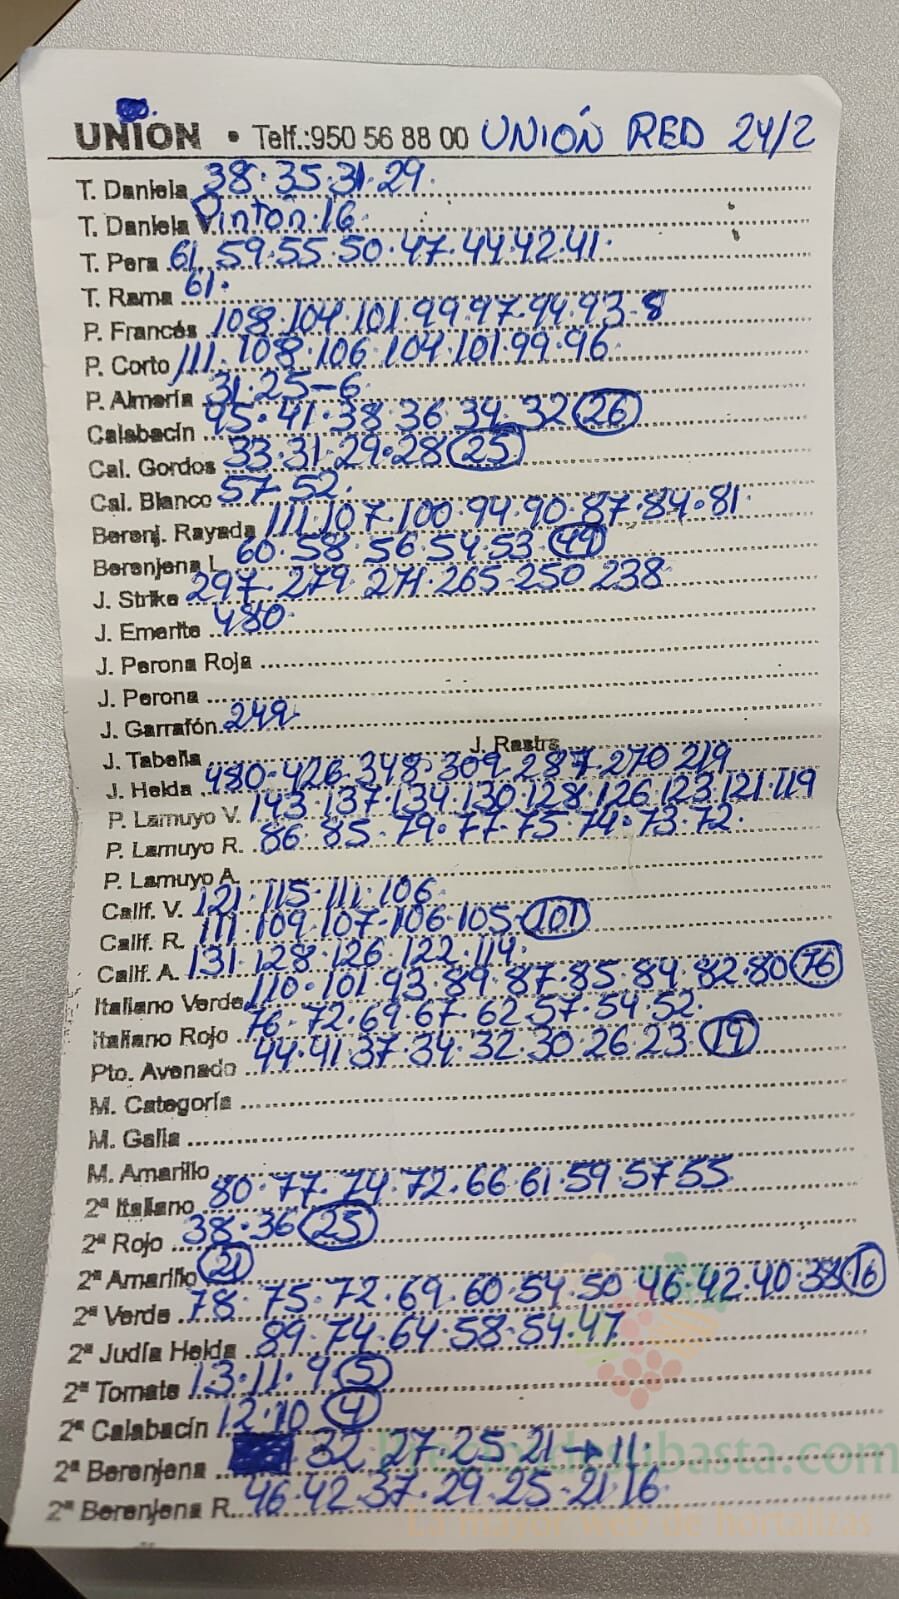 UNION • Telf.:950 56 88 00 UNIÓN RED 24/2
T. Daniela 38·35·31·29·
T. Daniela Pintón·16·
T. Pera 61·59·55·50·47·44·42·41·
T. Rama 61·
P. Francés 108·104·101·99·97·94·93-8
P. Corto 111·108·106·104·101·99·96·
P. Almería 31·25-6·
Calabacín 45·41·38·36·34·32 26
Cal. Gordos 33·31·29·28 25
Cal. Blanco 57·52·
Berenj. Rayada 111·107·100·94·90·87·84·81·
Berenjena L. 60·58·56·54·53· 49
J. Strike 297·279·271·265·250·238·
J. Emerite 480·
J. Perona Roja
J. Perona
J. Garrafón 249·
J. Tabella J. Rastra
J. Helda 480·426·348·309·287·270·219
P. Lamuyo V. 143·137·134·130·128·126·123·121·119
P. Lamuyo R. 86·85·79·77·75·74·73·72·
P. Lamuyo A.
Calif. V. 121·115·111·106·
Calif. R. 111·109·107·106·105· 101
Calif. A. 131·128·126·122·114·
Italiano Verde 110·101·93·89·87·85·84·82·80 76
Italiano Rojo 76·72·69·67·62·57·54·52·
Pto. Avenado 44·41·37·34·32·30·26·23· 19
M. Categoría
M. Galia
M. Amarillo
2ª Italiano 80·77·74·72·66·61·59·57·55
2ª Rojo 38·36 25
2ª Amarillo 21
2ª Verde 78·75·72·69·60·54·50 46·42·40·38 16
2ª Judía Helda 89·74·64·58·54·47
2ª Tomate 13·11·9 5
2ª Calabacín 12·10 4
2ª Berenjena 32 27·25·21→11·
2ª Berenjena R. 46·42·37·29·25·21·16·
Preciodesubasta.com
La mayor web de hortalizas